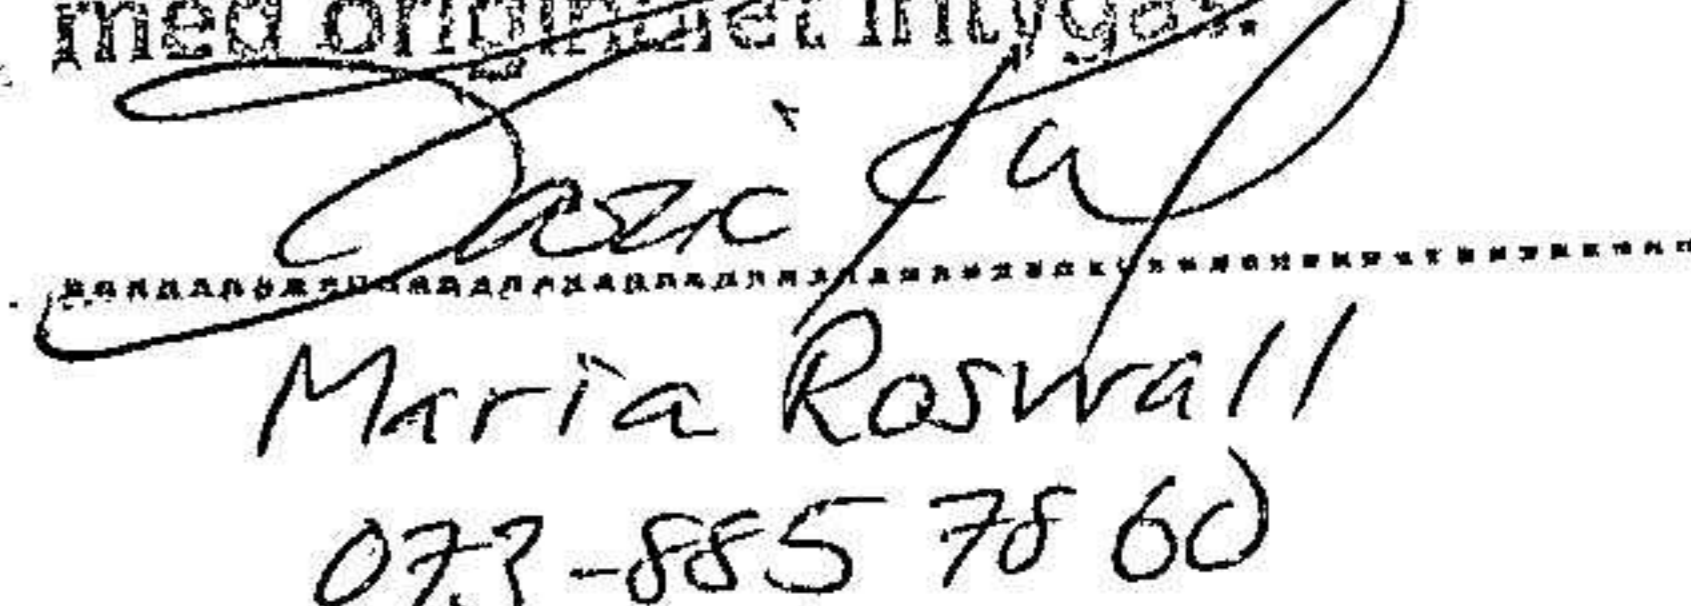 med originalet intygas.
Maria Roswall
073-885 78 60